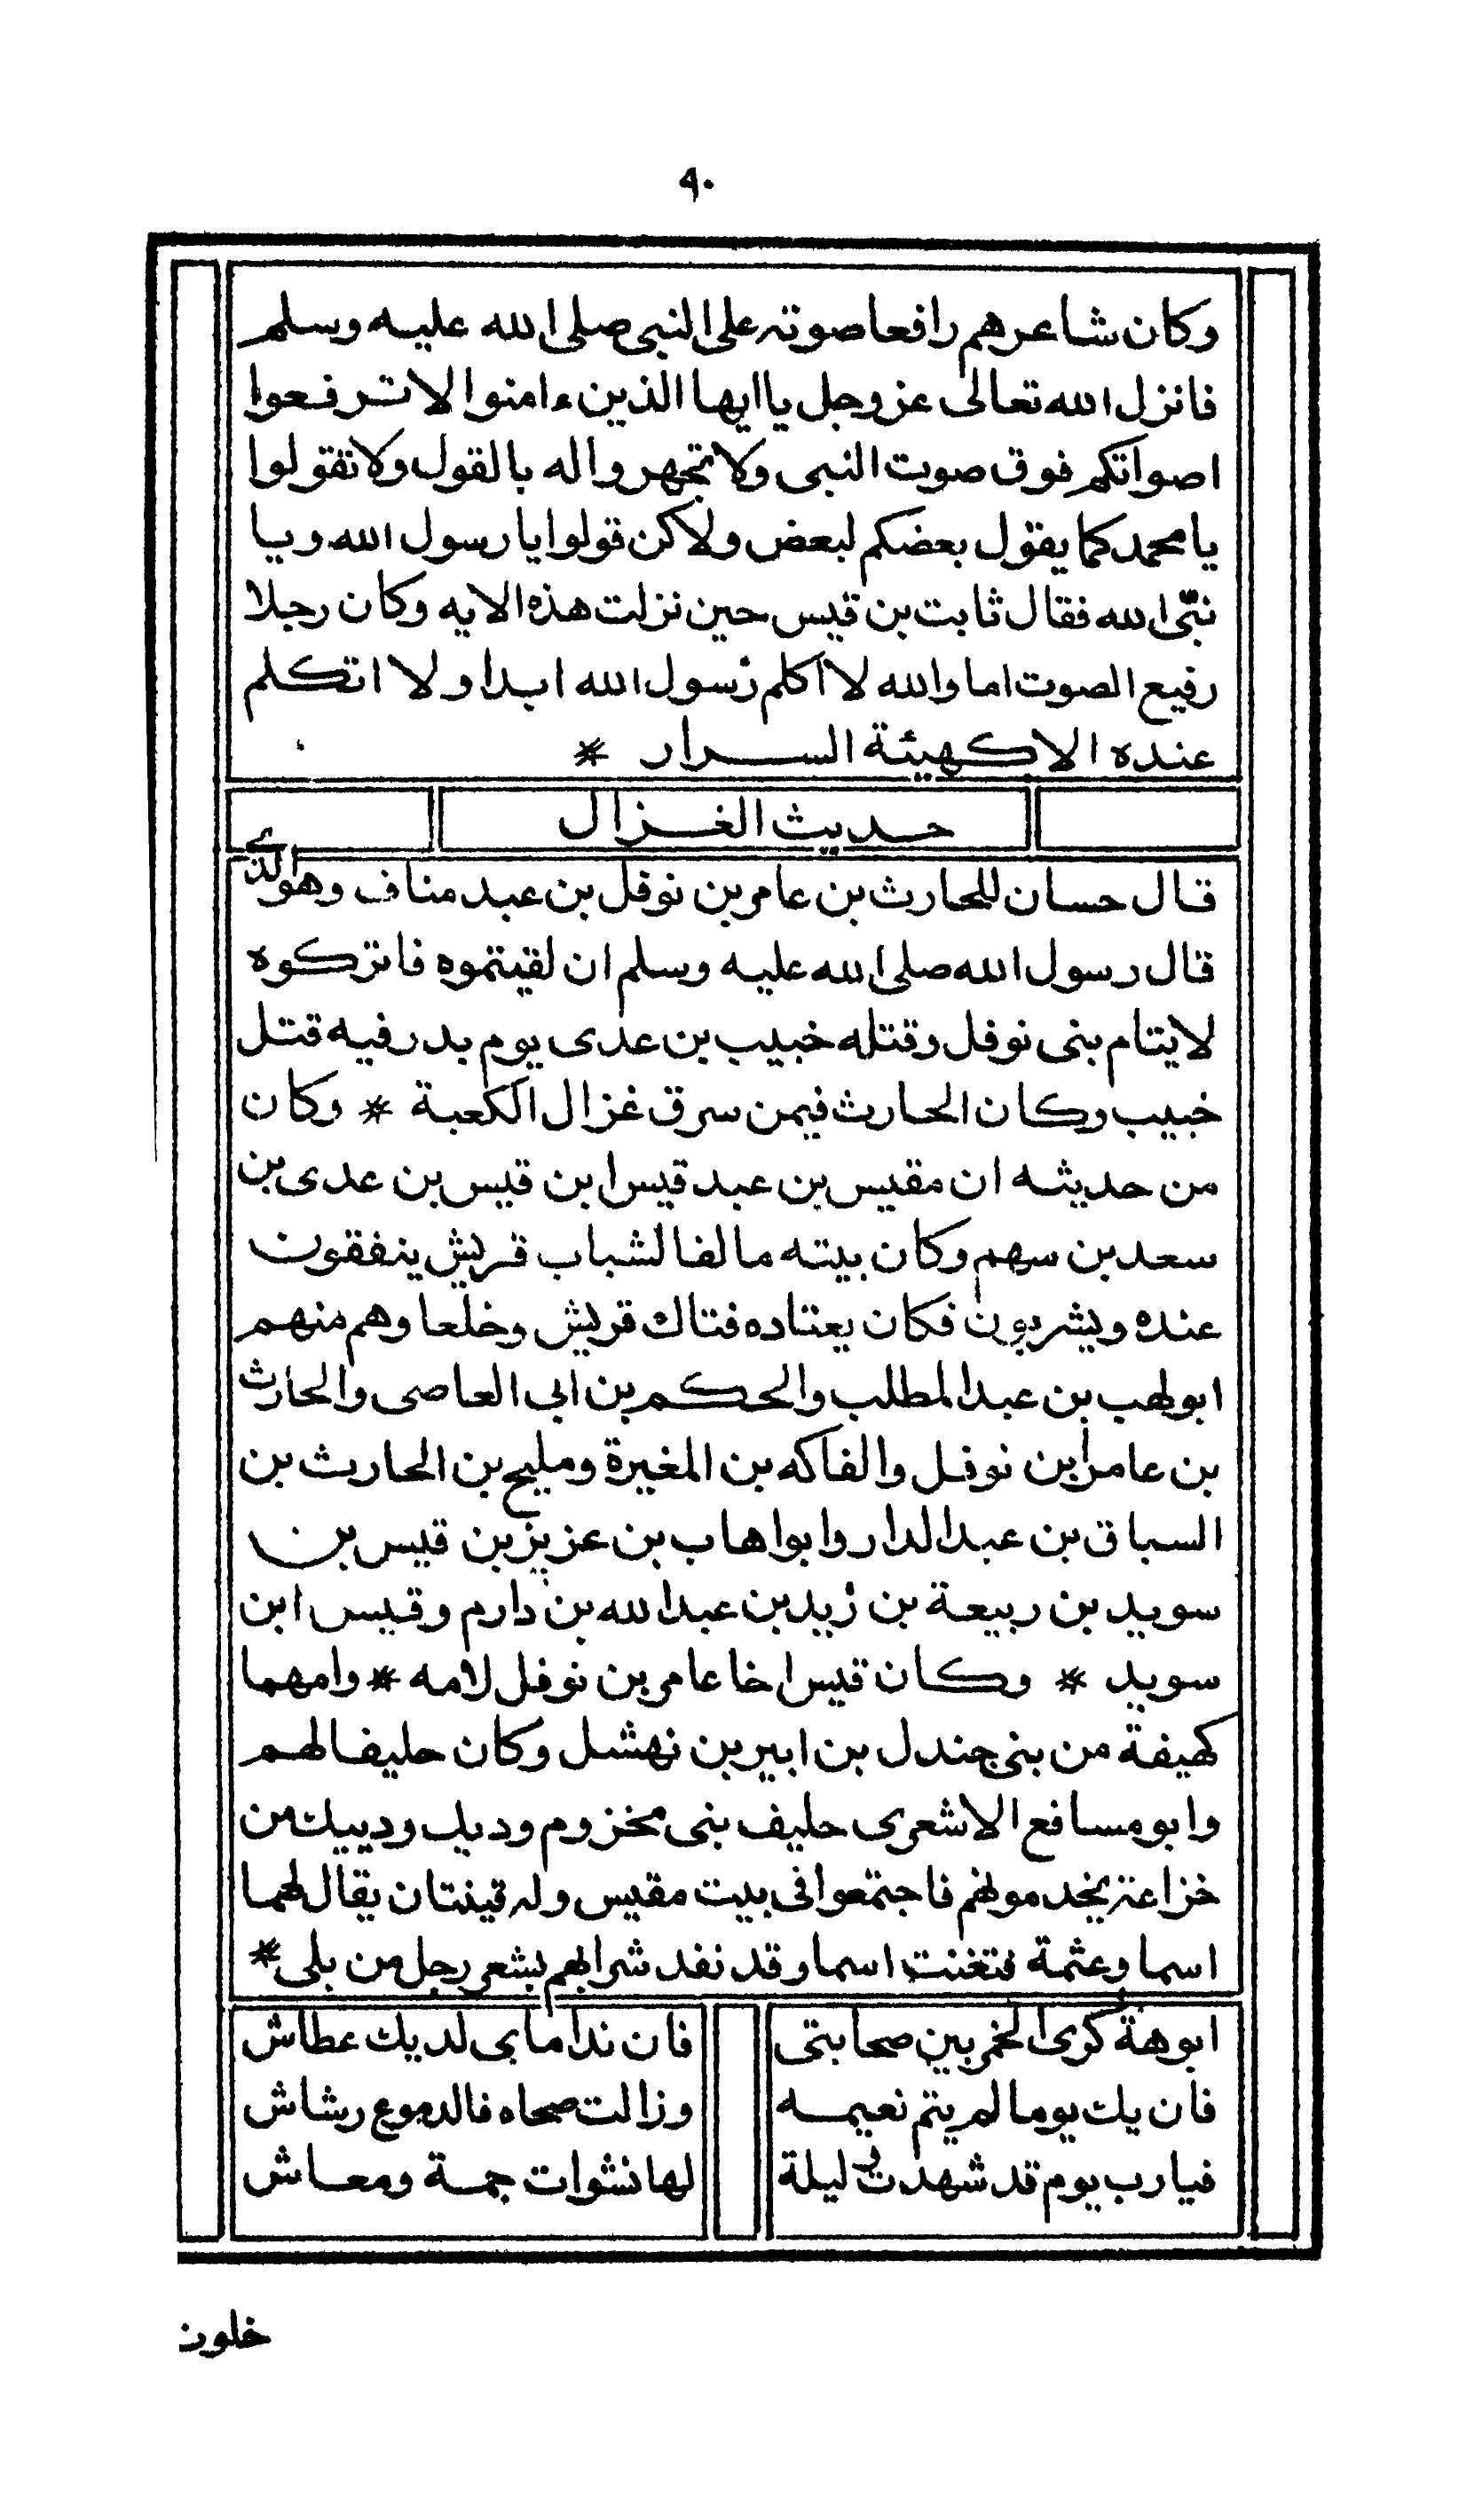 ٩٠
وكان شاعرهم رافعا صوته على النبى صلى الله عليه وسلم
فانزل الله تعالى عز وجل ياايها الذين ءامنوا لا ترفعوا
اصواتكم فوق صوت النبى ولا تجهروا له بالقول ولا تقولوا
يا محمد كما يقول بعضكم لبعض ولاكن قولوا يا رسول الله ويا
نبّى الله فقال ثابت بن قيس حين نزلت هذه الايه وكان رجلا
رفيع الصوت اما والله لا اكلم رسول الله ابدا ولا اتكلم
عنده الا كهيئة السرار *
حديث الغزال
قال حسان للحارث بن عامر بن نوفل بن عبد مناف وهو الذى
قال رسول الله صلى الله عليه وسلم ان لقيتموه فاتركوه
لايتام بنى نوفل وقتله خبيب بن عدى يوم بدر فيه قتل
خبيب وكان الحارث فيمن سرق غزال الكعبة * وكان
من حديثه ان مقيس بن عبد قيس ابن قيس بن عدى بن
سعد بن سهم وكان بيته مالفا لشباب قريش ينفقون
عنده ويشربون فكان يعتاده فتاك قريش وخلعاوهم منهم
ابو لهب بن عبد المطلب والحكم بن ابى العاصى والحارث
بن عامر ابن نوفل والفاكه بن المغيرة ومليح بن الحارث بن
السباق بن عبد الدار وابو اهاب بن عزيز بن قيس بن
سويد بن ربيعة بن زيد بن عبد الله بن دارم وقيس ابن
سويد * وكان قيس اخا عامر بن نوفل لامه * وامهما
كهيفة من بنى جندل بن ابير بن نهشل وكان حليفا لهم
وابو مسافع الاشعرى حليف بنى مخزوم وديك ودييك من
خزاعة يخدمونهم فاجتمعوا فى بيت مقيس وله قينتان يقال لهما
اسما وعثمة فتغنت اسما وقد نفد شرابهم بشعر رجل من بلى *
ابوهة كرى الخمر بين صحابتى فان نداماى لديك عطاش
فان يك يوما لم يتم نعيمه وزالت صحاه فالدموع رشاش
فيا رب يوم قد شهدت وليلة لها نشوات جمة ومعاش
خلون